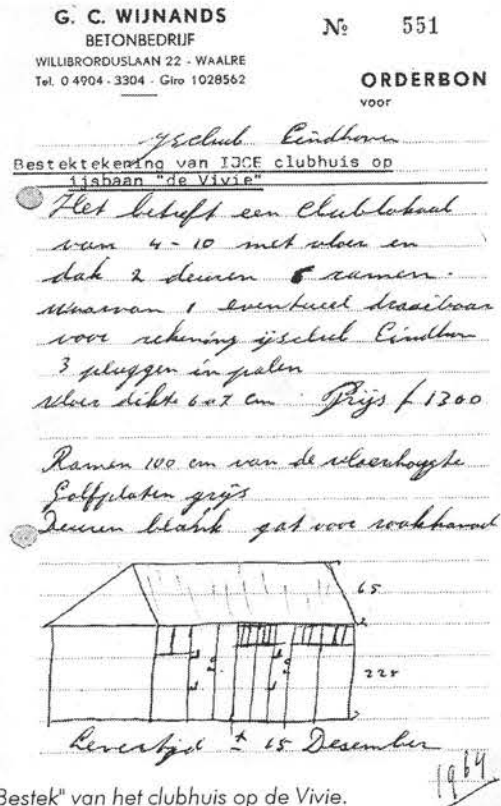 G. C. WIJNANDS
BETONBEDRIJF
WILLIBRORDUSLAAN 22 - WAALRE
Tel. 0 4904 - 3304 - Giro 1028562
№ 551
ORDERBON
voor
ijsclub Eindhoven
Bestektekening van IJCE clubhuis op
ijsbaan "de Vivie"
Het betreft een Clublokaal
van 4 - 10 met vloer en
dak 2 deuren 6 ramen.
waarvan 1 eventueel draaibaar
voor rekening ijsclub Eindhoven
3 pluggen in palen
vloer dikte 6 a 7 cm Prijs f 1300
Ramen 100 cm van de vloerhoogte
Golfplaten grijs
Deuren blank gat voor rookkanaal
65
225
Levertijd ± 15 Desember
1964
Bestek" van het clubhuis op de Vivie.